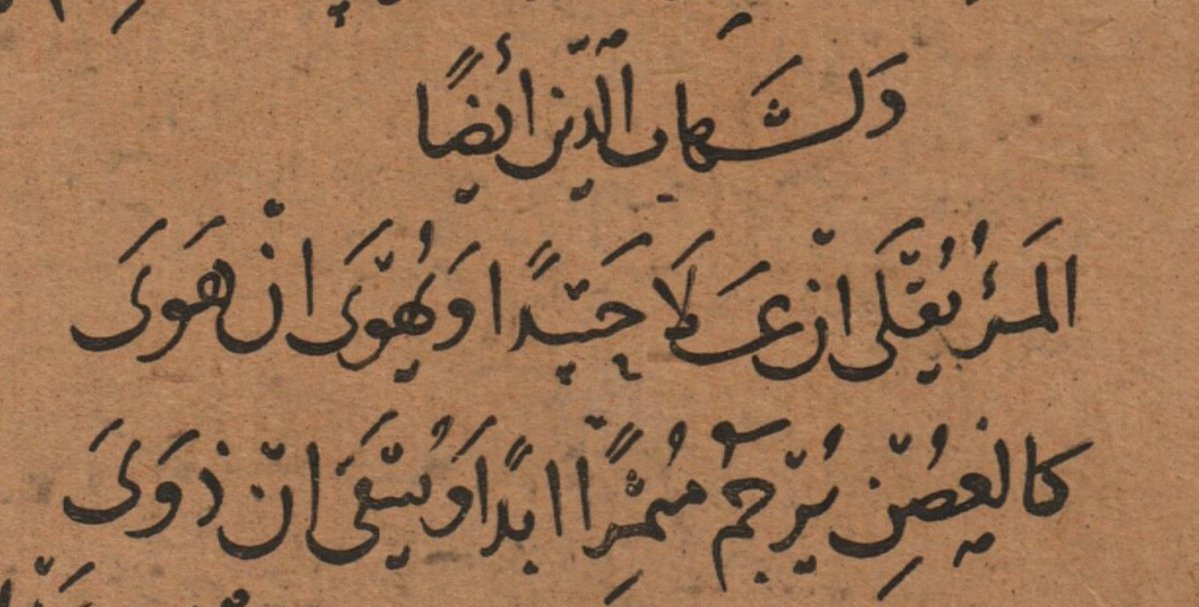 وَلشَهاب الدّين أيضًا
المَرءُ يُقْلَى انْ عَلَا جَيّدًا وَيُهْوَى انْ هَوَى
كالغُصْنِ يُرْجَمُ مُثمِرًا ابدًا وَيُسْقَى انْ ذَوَى